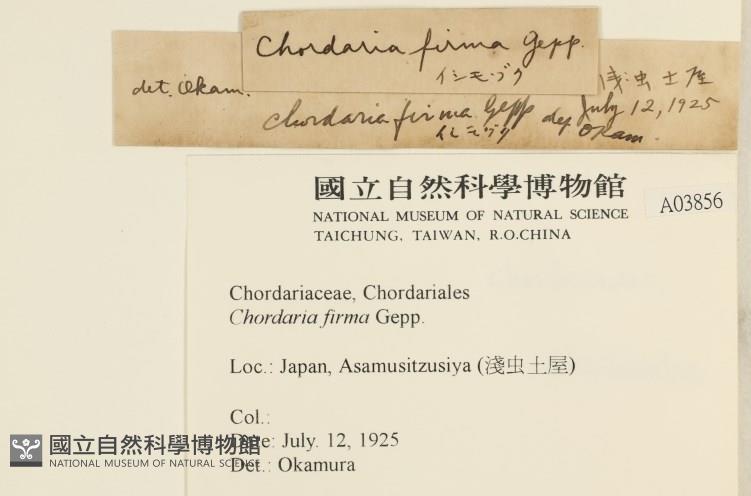 Chordaria firma Gepp.
イシモヅク
det. Okam.
浅虫土屋
Chordaria firma Gepp det July 12, 1925
イシモヅク Okam.
國立自然科學博物館
NATIONAL MUSEUM OF NATURAL SCIENCE
TAICHUNG, TAIWAN, R.O.CHINA
A03856
Chordariaceae, Chordariales
Chordaria firma Gepp.
Loc.: Japan, Asamusitzusiya (淺虫土屋)
Col.:
Date: July. 12, 1925
Det.: Okamura
國立自然科學博物館
NATIONAL MUSEUM OF NATURAL SCIENCE